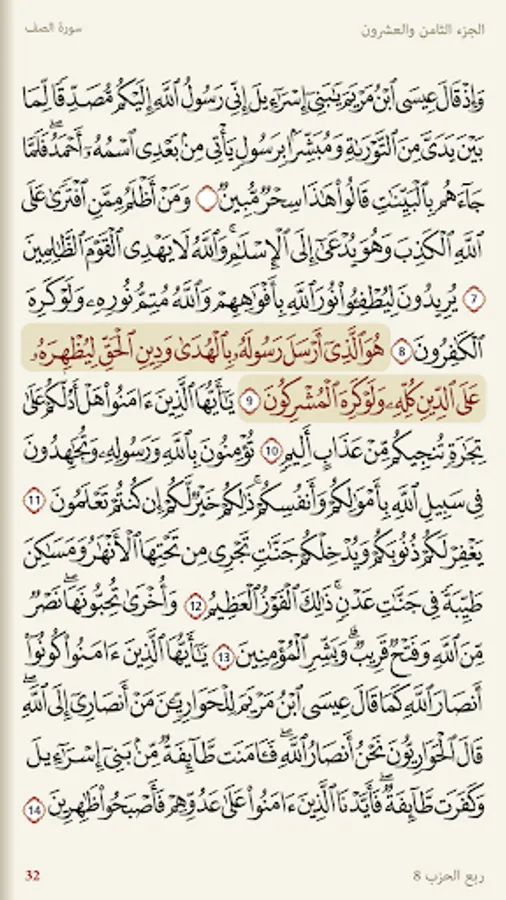 الجزء الثامن والعشرون
سورة الصف
وَإِذْ قَالَ عِيسَى ٱبْنُ مَرْيَمَ يَٰبَنِىٓ إِسْرَٰٓءِيلَ إِنِّى رَسُولُ ٱللَّهِ إِلَيْكُم مُّصَدِّقًا لِّمَا
بَيْنَ يَدَىَّ مِنَ ٱلتَّوْرَىٰةِ وَمُبَشِّرًۢا بِرَسُولٍ يَأْتِى مِنۢ بَعْدِى ٱسْمُهُۥٓ أَحْمَدُ ۖ فَلَمَّا
جَآءَهُم بِٱلْبَيِّنَٰتِ قَالُوا۟ هَٰذَا سِحْرٌ مُّبِينٌ وَمَنْ أَظْلَمُ مِمَّنِ ٱفْتَرَىٰ عَلَى
ٱللَّهِ ٱلْكَذِبَ وَهُوَ يُدْعَىٰٓ إِلَى ٱلْإِسْلَٰمِ ۚ وَٱللَّهُ لَا يَهْدِى ٱلْقَوْمَ ٱلظَّٰلِمِينَ
7 يُرِيدُونَ لِيُطْفِـُٔوا۟ نُورَ ٱللَّهِ بِأَفْوَٰهِهِمْ وَٱللَّهُ مُتِمُّ نُورِهِۦ وَلَوْ كَرِهَ
ٱلْكَٰفِرُونَ 8 هُوَ ٱلَّذِىٓ أَرْسَلَ رَسُولَهُۥ بِٱلْهُدَىٰ وَدِينِ ٱلْحَقِّ لِيُظْهِرَهُۥ
عَلَى ٱلدِّينِ كُلِّهِۦ وَلَوْ كَرِهَ ٱلْمُشْرِكُونَ 9 يَٰٓأَيُّهَا ٱلَّذِينَ ءَامَنُوا۟ هَلْ أَدُلُّكُمْ عَلَىٰ
تِجَٰرَةٍ تُنجِيكُم مِّنْ عَذَابٍ أَلِيمٍ 10 تُؤْمِنُونَ بِٱللَّهِ وَرَسُولِهِۦ وَتُجَٰهِدُونَ
فِى سَبِيلِ ٱللَّهِ بِأَمْوَٰلِكُمْ وَأَنفُسِكُمْ ۚ ذَٰلِكُمْ خَيْرٌ لَّكُمْ إِن كُنتُمْ تَعْلَمُونَ 11
يَغْفِرْ لَكُمْ ذُنُوبَكُمْ وَيُدْخِلْكُمْ جَنَّٰتٍ تَجْرِى مِن تَحْتِهَا ٱلْأَنْهَٰرُ وَمَسَٰكِنَ
طَيِّبَةً فِى جَنَّٰتِ عَدْنٍ ۚ ذَٰلِكَ ٱلْفَوْزُ ٱلْعَظِيمُ 12 وَأُخْرَىٰ تُحِبُّونَهَا ۖ نَصْرٌ
مِّنَ ٱللَّهِ وَفَتْحٌ قَرِيبٌ ۗ وَبَشِّرِ ٱلْمُؤْمِنِينَ 13 يَٰٓأَيُّهَا ٱلَّذِينَ ءَامَنُوا۟ كُونُوٓا۟
أَنصَارَ ٱللَّهِ كَمَا قَالَ عِيسَى ٱبْنُ مَرْيَمَ لِلْحَوَارِيِّـۧنَ مَنْ أَنصَارِىٓ إِلَى ٱللَّهِ ۖ
قَالَ ٱلْحَوَارِيُّونَ نَحْنُ أَنصَارُ ٱللَّهِ ۖ فَـَٔامَنَت طَّآئِفَةٌ مِّنۢ بَنِىٓ إِسْرَٰٓءِيلَ
وَكَفَرَت طَّآئِفَةٌ ۖ فَأَيَّدْنَا ٱلَّذِينَ ءَامَنُوا۟ عَلَىٰ عَدُوِّهِمْ فَأَصْبَحُوا۟ ظَٰهِرِينَ 14
ربع الحزب 8
32